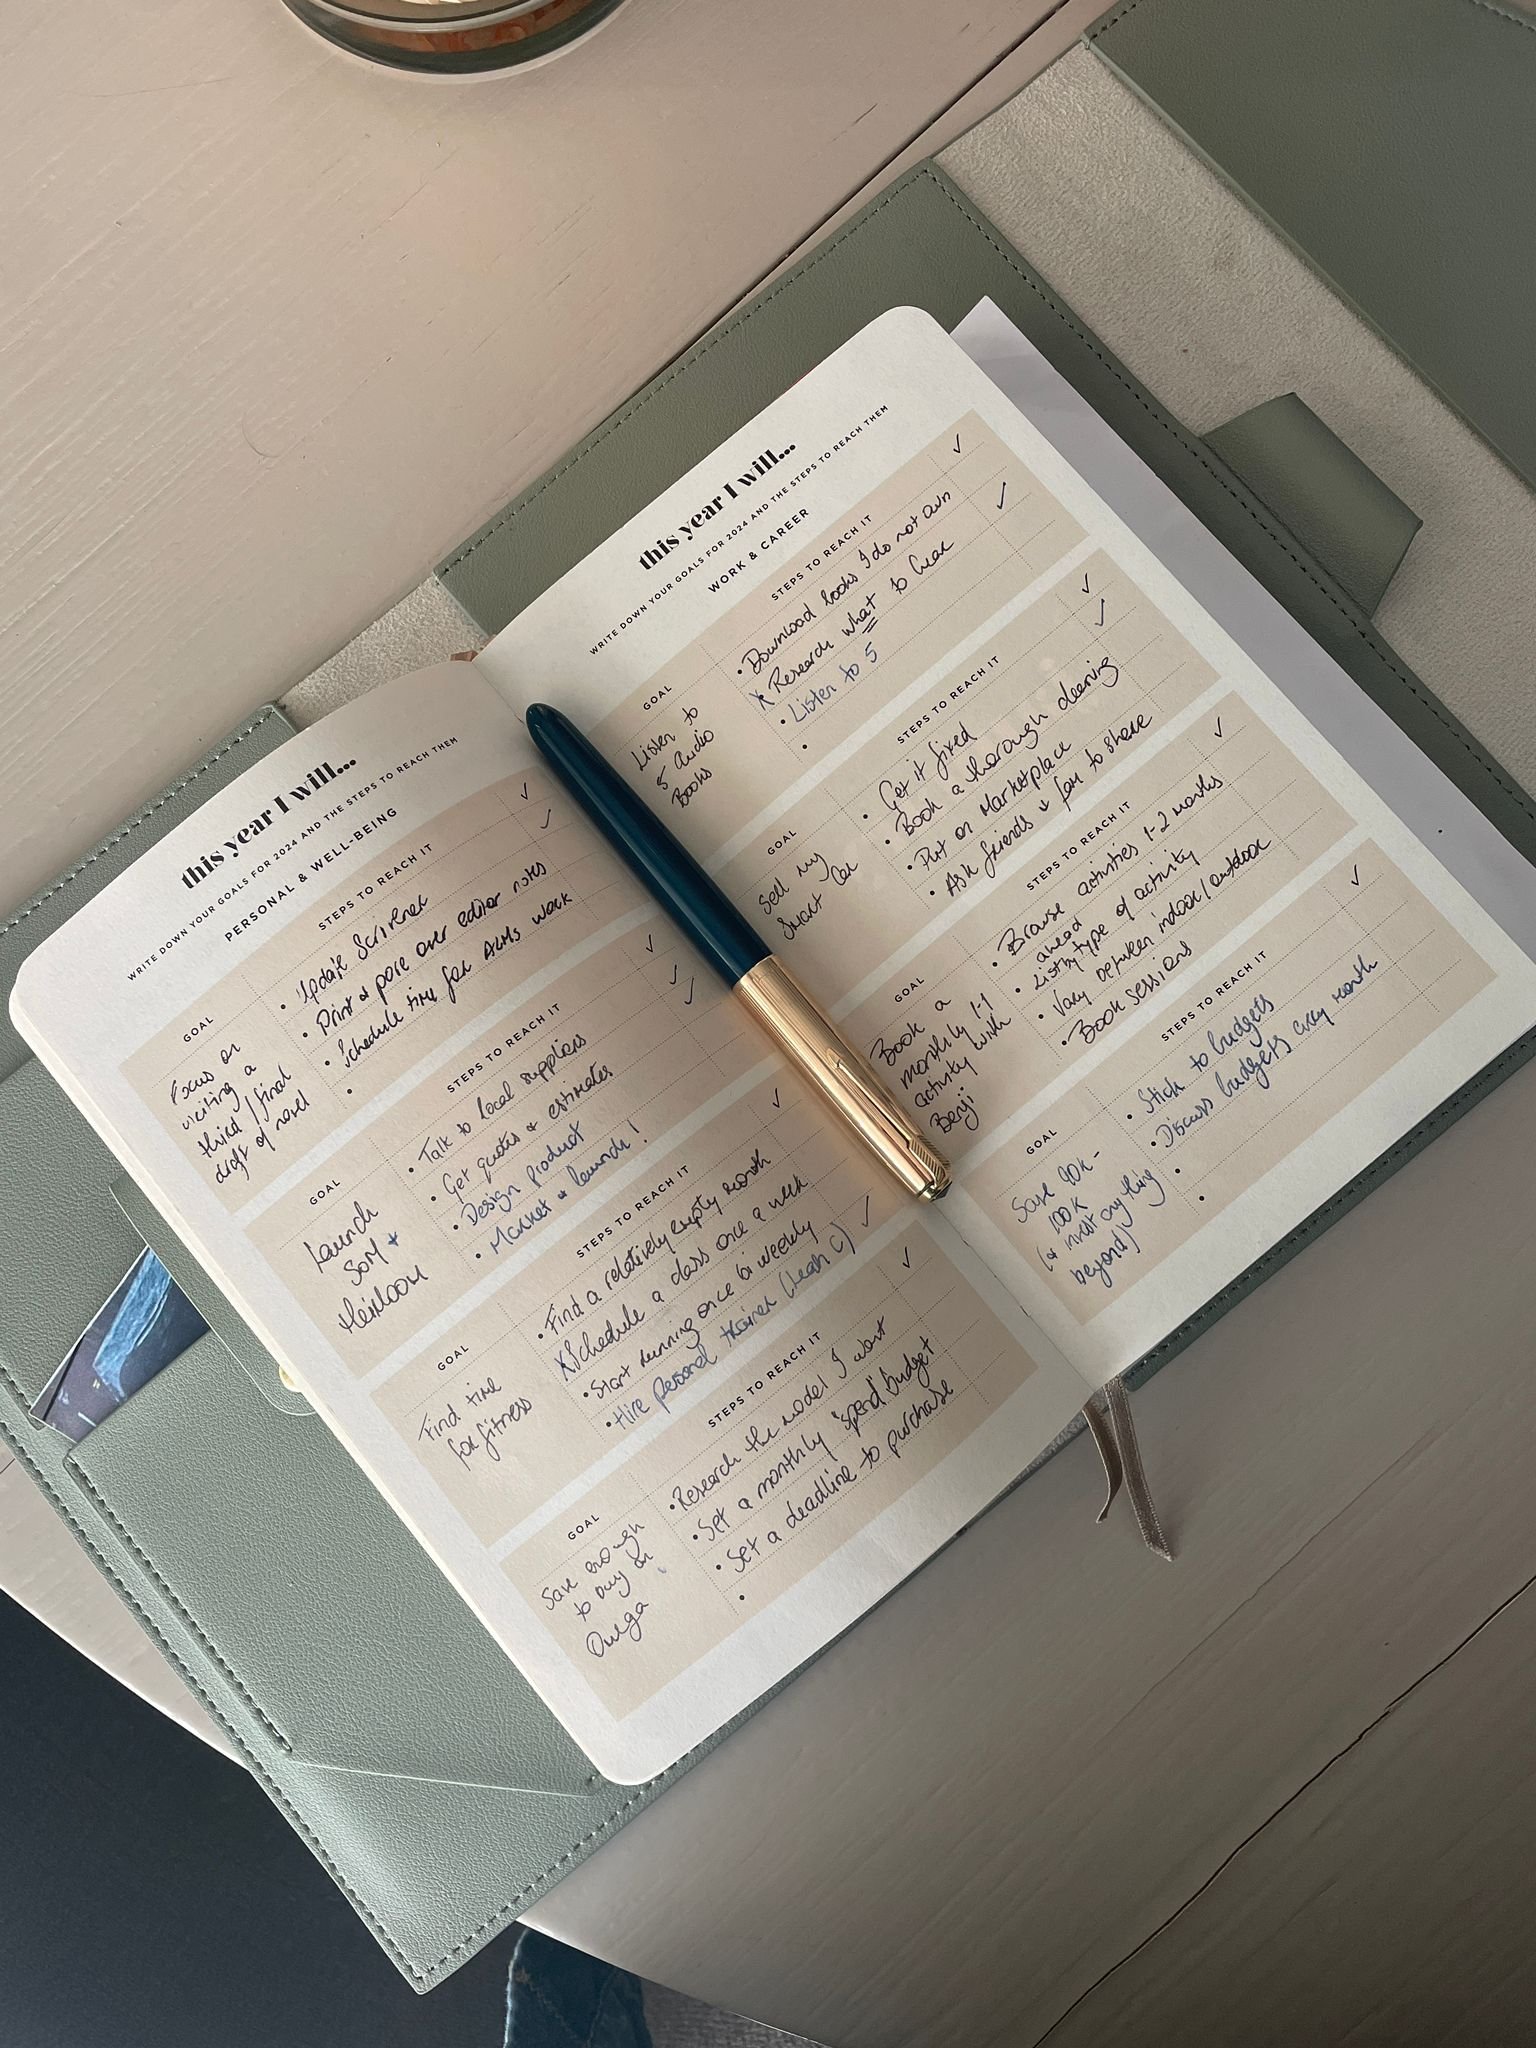 this year I will...
WRITE DOWN YOUR GOALS FOR 2024 AND THE STEPS TO REACH THEM
PERSONAL & WELL-BEING
GOAL
Focus on
writing a
third / final
draft of novel
STEPS TO REACH IT
✓
• Update Scrivener
✓
• Print & pore over editor notes
• Schedule time for ALMS work
•
GOAL
Launch
SoM &
Heirloom
STEPS TO REACH IT
✓
• Talk to local suppliers
✓
• Get quotes & estimates
✓
• Design product
• Market & launch!
GOAL
Find time
for fitness
STEPS TO REACH IT
✓
• Find a relatively empty month
X Schedule a class once a week
• Start running once bi weekly
• Hire personal trainer (Leah C)
✓
GOAL
Save enough
to buy an
Omega
STEPS TO REACH IT
✓
• Research the model I want
• Set a monthly "spend" budget
• Set a deadline to purchase
•
this year I will...
WRITE DOWN YOUR GOALS FOR 2024 AND THE STEPS TO REACH THEM
WORK & CAREER
GOAL
Listen to
5 Audio
Books
STEPS TO REACH IT
✓
• Download books I do not own
X Research what to hear
✓
• Listen to 5
•
GOAL
Sell my
Smart Car
STEPS TO REACH IT
✓
• Get it fixed
✓
• Book a thorough cleaning
• Put on Marketplace
• Ask friends & fam to share
GOAL
Book a
monthly 1-1
activity with
Benji
STEPS TO REACH IT
✓
• Browse activities 1-2 months
ahead
• List by type of activity
• Vary between indoor/outdoor
• Book sessions
GOAL
Save 90k-
100k
(& invest anything
beyond)
STEPS TO REACH IT
✓
• Stick to budgets
• Discuss budgets every month
•
•